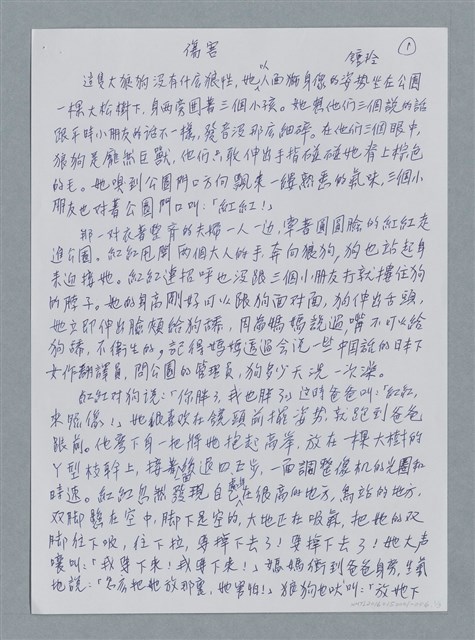 傷害
鍾玲
1
這隻大狼狗沒有什么狼性,她以人面獅身像的姿勢坐在公園
一棵大松樹下,身两旁围著三個小孩。她想他們三個說的話
跟平時小朋友的话不一樣,發音沒那么細碎。在他们三個眼中,
狼狗是龐然巨獸,他們只敢伸出手指碰碰她背上棕色
的毛。她嗅到公園門口方向飄來一縷熟悉的氣味,三個小
朋友也对著公園門口叫:「紅紅!」
那一对衣著整齊的夫婦一人一边,牽著圓圓臉的紅紅走
進公園。紅紅甩開两個大人的手,奔向狼狗,狗也站起身
来迎接她。紅紅連招呼也沒跟三個小朋友打就摟住狗
的脖子。她的身高剛好可以跟狗面对面,狗伸出舌頭,
她立即伸出臉頰給狗舔,因為媽媽說過,嘴不可以給
狗舔,不衛生的,記得媽媽透過会说一些中国話的日本下
女作翻譯員,問公園的管理員,狗多少天洗一次澡。
紅紅对狗說:「你胖了,我也胖了。」這時爸爸叫:「紅紅,
來照像!」她很喜欢在镜頭前擺姿势,就跑到爸爸
跟前。他彎下身一把將她抱起高举,放在一棵大樹的
丫型枝幹上,接著後退四五步,一面調整像机的光圈和
時速。紅紅忽然發現自己身在很高的地方,無站的地方,
双脚懸在空中,脚下是空的,大地正在吸氣,把她的双
脚往下吸,往下拉,要掉下去了!要掉下去了!她大声
嚷叫:「我要下来!我要下来!」媽媽衝到爸爸身旁,生氣
地說:「怎么把她放那里,她害怕!」狼狗也吠叫:「放她下